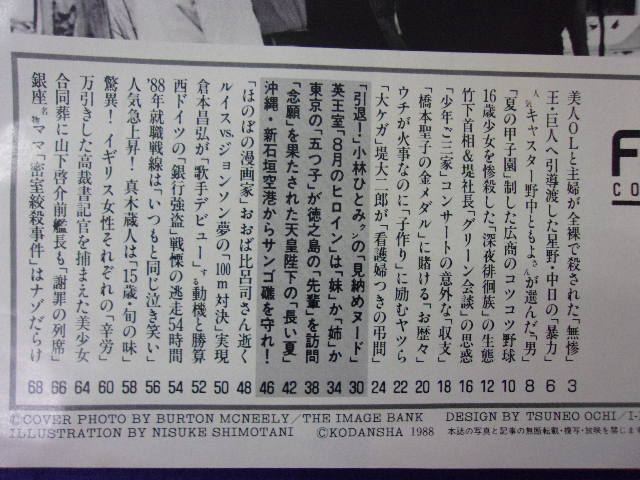 F
CO
美人OLと主婦が全裸で殺された「無惨」 3
王・巨人へ引導渡した星野・中日の「暴力」 6
人気キャスター野中ともよさんが選んだ「男」 8
「夏の甲子園」制した広商のコツコツ野球 10
16歳少女を惨殺した「深夜徘徊族」の生態 12
竹下首相&堤社長「グリーン会談」の思惑 16
「少年ご三家」コンサートの意外な「収支」 18
「橋本聖子の金メダル」に賭ける「お歴々」 20
ウチが火事なのに「子作り」に励むヤツら 22
「大ケガ」堤大二郎が「看護婦つきの弔問」 24
「引退!」小林ひとみクンの「見納めヌード」 30
英王室「8月のヒロイン」は「妹」か「姉」か 34
東京の「五つ子」が徳之島の「先輩」を訪問 38
「念願」を果たされた天皇陛下の「長い夏」 42
沖縄・新石垣空港からサンゴ礁を守れ! 46
「ほのぼの漫画家」おおば比呂司さん逝く 48
ルイスvs.ジョンソン夢の「100m対決」実現 50
倉本昌弘が「歌手デビュー」する動機と勝算 52
西ドイツの「銀行強盗」戦慄の逃走54時間 54
'88年就職戦線は「いつもと同じ泣き笑い」 56
人気急上昇!真木蔵人は「15歳・旬の味」 58
驚異!イギリス女性それぞれの「辛労」 60
万引きした高裁書記官を捕まえた美少女 64
合同葬に山下啓介前艦長も「謝罪の列席」 66
銀座名物ママ「密室絞殺事件」はナゾだらけ 68
©COVER PHOTO BY BURTON MCNEELY/THE IMAGE BANK DESIGN BY TSUNEO OCHI/I-
ILLUSTRATION BY NISUKE SHIMOTANI ©KODANSHA 1988 本誌の写真と記事の無断転載・複写・放映を禁じます